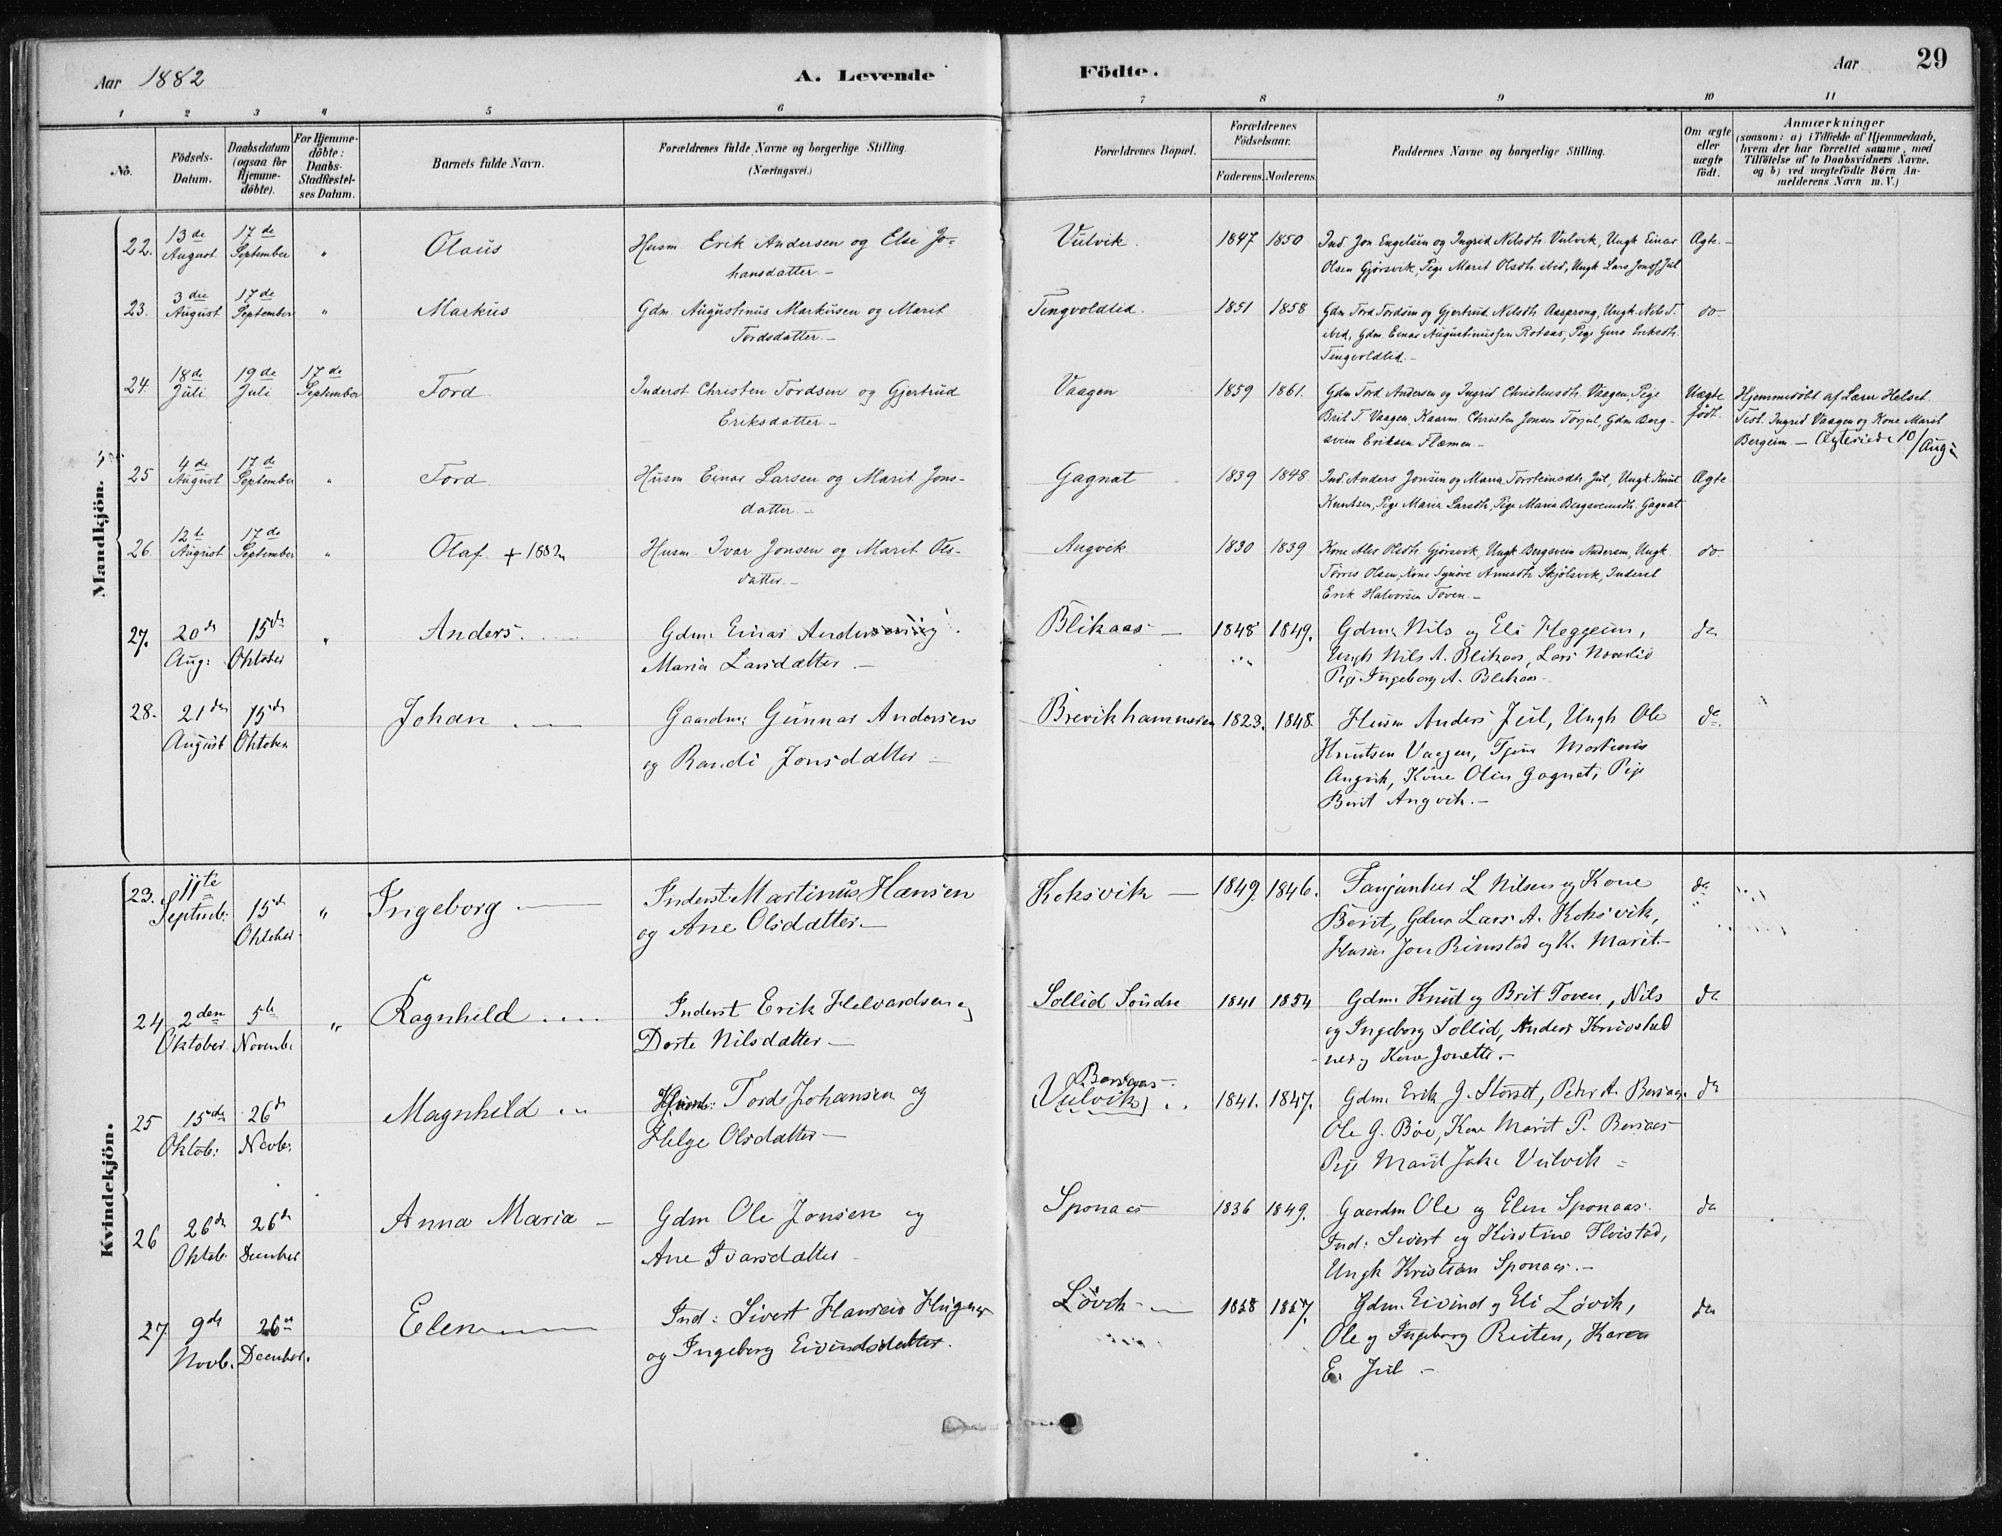 Aar 1882 A. Levende Födte. Aar 29
1 2 3 4 5 6 7 8 9 10 11
No.
Födsels-
Datum.
Daabsdatum
(ogsaa for
Hjemme-
döbte).
For Hjemme-
döbte:
Daabs-
Stadfæstel-
ses Datum.
Barnets fulde Navn.
Forældrenes fulde Navne og borgerlige Stilling.
(Næringsvei.)
Forældrenes Bopæl.
Forældrenes
Födselsaar.
Faderens. Moderens.
Faddernes Navne og borgerlige Stilling.
Om ægte
eller
uægte
födt.
Anmærkninger
(saasom: a) i Tilfælde af Hjemmedaab,
hvem der har forrettet samme, med
Tilföielse af to Daabsvidners Navne.
og b) ved uægtefödte Börn An-
melderens Navn m. V.)
Mandkjön.
22. 13de August 17de September " Olaus
Husm Erik Andersen og Else Jo-
hansdatter.-
Vulvik. 1847 1850
Ind. Jon Engelsen og Ingrid Nilsdtr. Vulvik, Ungk Einar
Olsen Gjørsvik, Pige Marit Olsdtr. ibid, Ungk Lars Jul
Ægte.-
23. 3die August 17de September " Markus
Gdm. Augustinus Markusen og Marit
Tordsdatter.-
Tingvoldlid. 1851 1858
Gdm Tord Tordsen og Gjertrud Nilsdtr. Aasprong, Ungk Nils T.
ibid, Gdm. Einar Augustinussen Rotaas, Pige Guro Eriksdtr.
Tingvoldlid.-
do.
24. 18de Juli 19de Juli 17de September Tord
Inderst Christen Tordsen og Gjertrud
Eriksdatter.-
Vaagen 1859 1861.
Gdm Tord Andersen og Ingrid Christensdtr. Vaagen, Pige
Brit T. Vaagen, Kaarm Christen Jonsen Torjul, Gdm Berg-
svein Eriksen Flemen.-
Uægte
født.
Hjemmedøbt af Lærer Helset.
Test. Ingrid Vaagen og Kone Marit
Bergeim - Ægteviede 10/Aug:
25 4de August 17de September " Tord
Husm Einar Larsen og Marit Jons-
datter.-
Gagnat 1839 1848
Ind. Anders Jonsen og Maria Torsteinsdtr. Jul, Ungk Knut
Knutsen, Pige Marie Larsdtr, Pige Maria Bergsveinsdtr. Gagnat
Ægte
26. 12te August 17de September " Olaf. + 1882
Husm. Ivar Jonsen og Marit Ols-
datter.-
Angvik 1830 1839
Kone Olsdtr. Gjørsvik, Ungk Bergsvein Andersen, Ungk
Tørris Olsen, Kone Synøve Arnesdtr. Skjølsvik, Inderst
Erik Halvorsen Toven.-
do.
27. 20de Aug: 15de Oktober " Anders.
Gdm. Einar Andersen og
Maria Larsdatter -
Blikaas - 1848 1849.
Gdm. Nils og Eli Heggeim,
Ungk Nils A. Blikaas, Lars
Pige Ingeborg A. Blikaas.
do
28. 21de August 15de Oktober Johan
Gaardm. Gunnar Andersen
og Randi Jonsdatter -
Brevikhammeren 1823. 1848.
Husm Anders Jul, Ungk Ole
Knutsen Vaagen, Martinus
Angvik, Kone Olin Gagnat, Pige
Berit Angvik.-
do.
Kvindekjön.
23. 11te Septemb: 15de Oktober " Ingeborg
Inderst Martinus Hansen
og Ane Olsdatter.-
Koksvik - 1849. 1846.
L Nilsen og Kone
Berit, Gdm Lars A. Koksvik,
Husm Jon Rimstad og K. Marit.-
do
24 2den Oktober 5te Novembr " Ragnhild
Inderst Erik Halvardsen og
Dorte Nilsdatter -
Sollid Søndre 1841 1854
Gdm. Knut og Brit Toven, Nils
og Ingeborg Sollid, Anders
og Kone Jonette.-
do
25 15de Oktob: 26de Novb: Magnhild
Tord Johansen og
Helge Olsdatter -
Bersaas-
Vulvik 1841. 1847.
Gdm. Erik J. Storset, Peder A. Bersaas
Ole G. Bøe, Kone Marit P. Bersaas
Pige Marit Vulvik -
do
26 26de Oktob: 26de December Anna Maria -
Gdm Ole Jonsen og
Ane Ivarsdatter
Sponaas 1836 1849.
Gaardm Ole og Elen Sponaas.
Ind: Sivert og Kirstine Flvistad,
Ungk Kristian Sponaas.-
do
27 9de Novb. 26de December. Elen
Ind: Sivert Hansen
og Ingeborg Eivindsdatter.
Løvik - 1858 1857.
Gdm. Eivind og Eli Løvik,
Ole og Ingeborg Reiten, Karen
E. Jul -
do